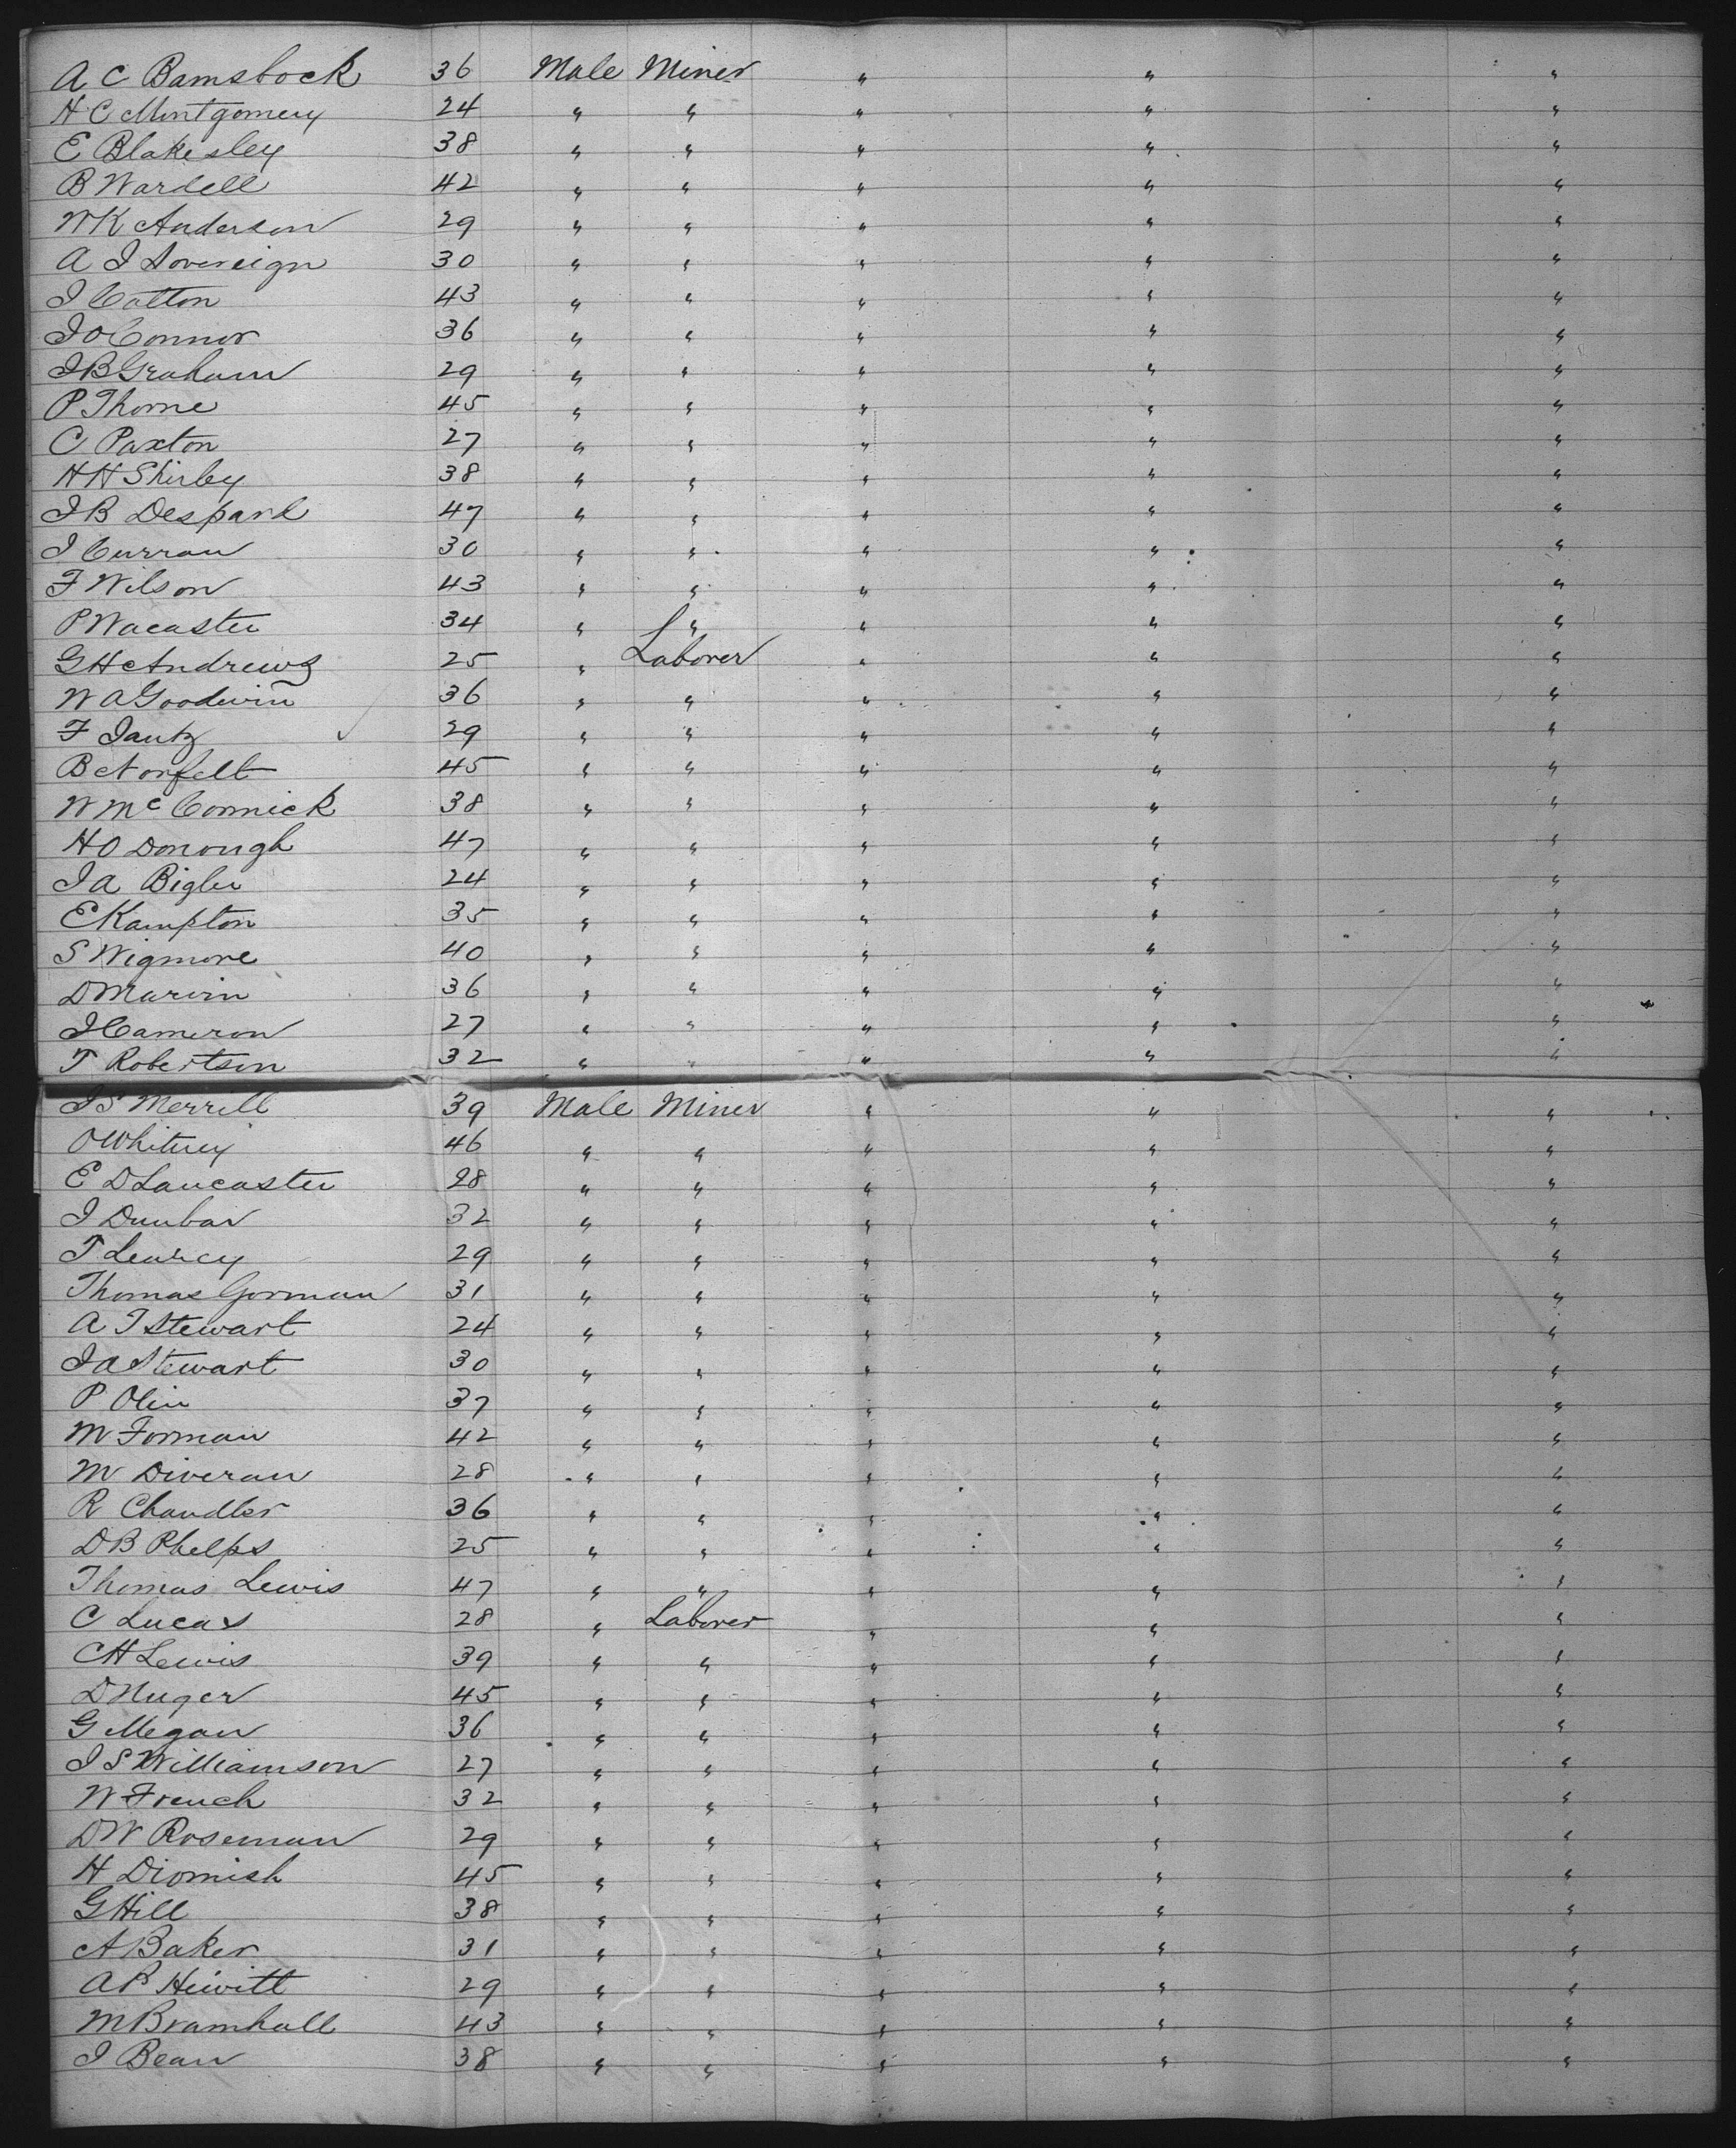 A C Bamsbock 36 Male Miner " " "
H C Montgomery 24 " " " " "
E Blakesley 38 " " " " "
B Wardell 42 " " " " "
W K Anderson 29 " " " " "
A J Sovereign 30 " " " " "
J Cotton 43 " " " " "
J O Connor 36 " " " " "
J B Graham 29 " " " " "
P Thorne 45 " " " " "
C Paxton 27 " " " " "
H H Shirley 38 " " " " "
J B Despard 47 " " " " "
J Curran 30 " " " " "
F Wilson 43 " " " " "
P Wacaster 34 " " " " "
G H Andrews 25 " Laborer " " "
W A Goodwin 36 " " " " "
F Jantz 29 " " " " "
B Norfelt 45 " " " " "
W McCormick 38 " " " " "
H O Donough 47 " " " " "
J A Bigler 24 " " " " "
E Kampton 35 " " " " "
S Wigmore 40 " " " " "
D Marvin 36 " " " " "
J Cameron 27 " " " " "
T Robertson 32 " " " " "
J S Merrill 39 Male Miner " " "
O Whitney 46 " " " " "
E D Lancaster 28 " " " " "
J Dunbar 32 " " " " "
T Searcy 29 " " " " "
Thomas Gorman 31 " " " " "
A T Stewart 24 " " " " "
J A Stewart 30 " " " " "
P Olin 37 " " " " "
M Forman 42 " " " " "
M Diveran 28 " " " " "
R Chandler 36 " " " " "
D B Phelps 25 " " " " "
Thomas Lewis 47 " " " " "
C Lucas 28 " Laborer " " "
C H Lewis 39 " " " " "
D Huger 45 " " " " "
G Megan 36 " " " " "
J S Williamson 27 " " " " "
W French 32 " " " " "
D W Roseman 29 " " " " "
H Diomish 45 " " " " "
G Hill 38 " " " " "
A Baker 31 " " " " "
A P Hewitt 29 " " " " "
M Bramhall 43 " " " " "
J Bean 38 " " " " "